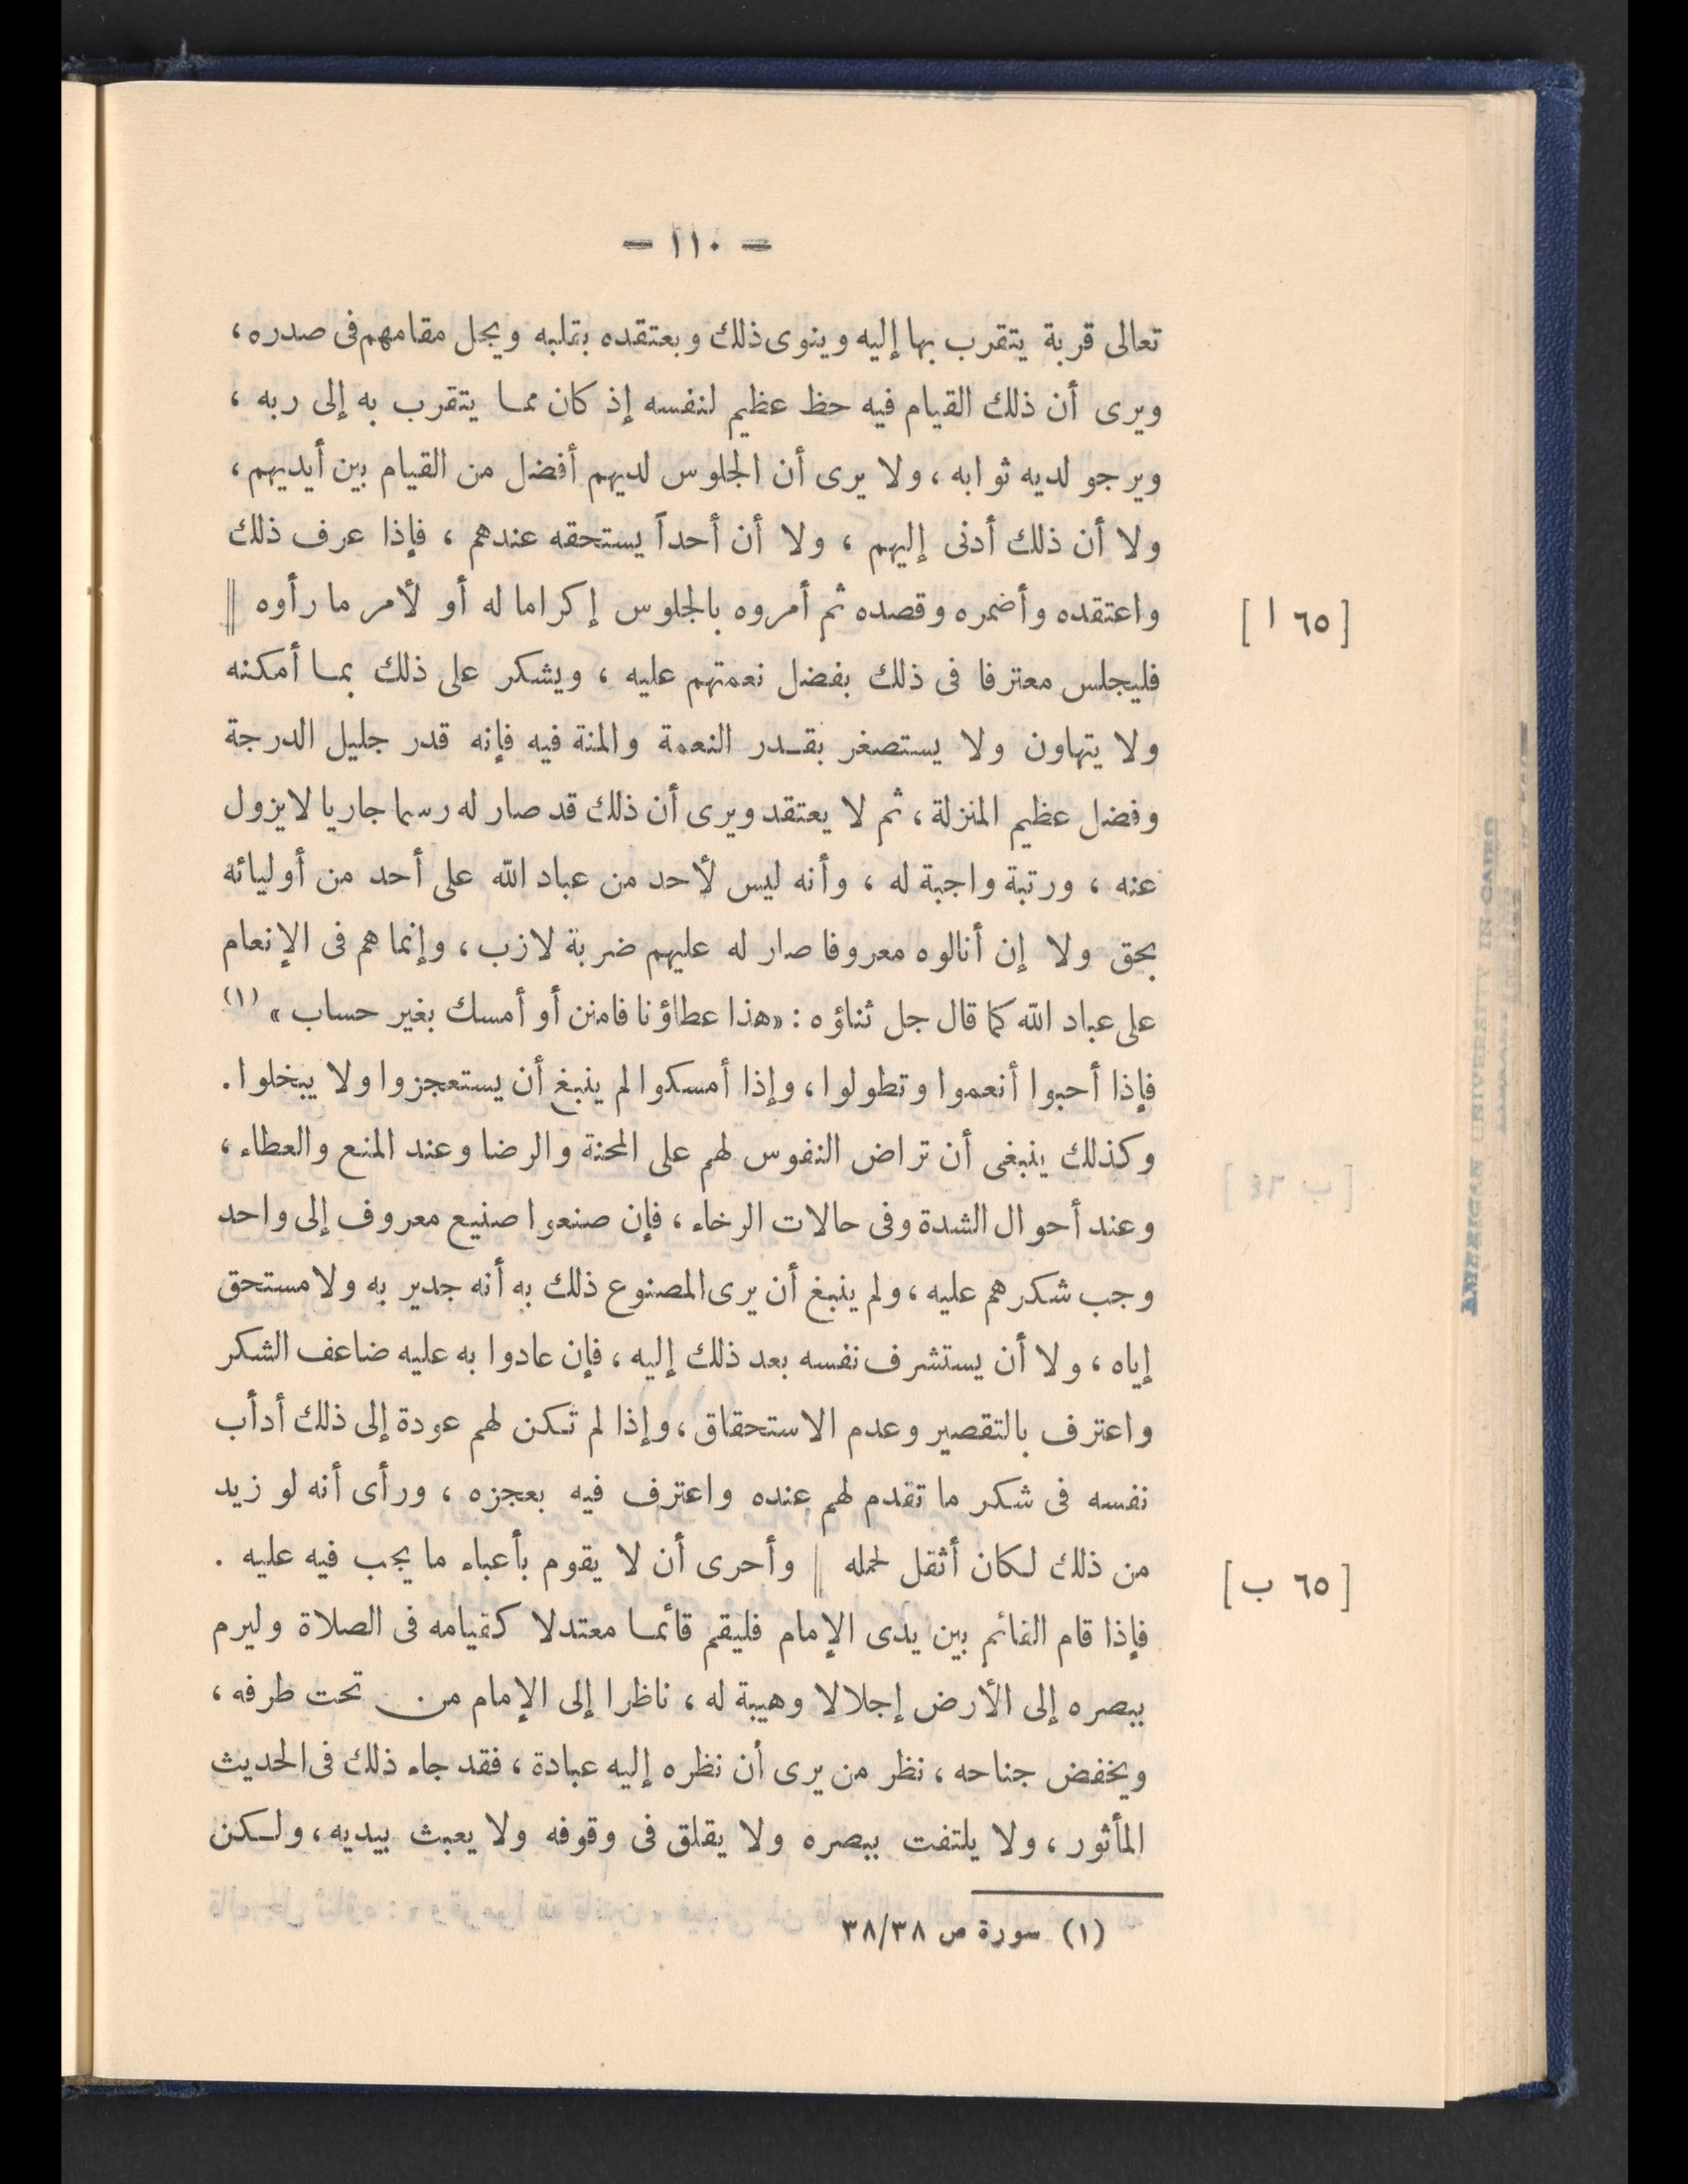 — ١١٠ —
تعالى قربة يتقرب بها إليه وينوى ذلك وبعتقده بقلبه ويجل مقامهم فى صدره ،
ويرى أن ذلك القيام فيه حظ عظيم لنفسه إذ كان مما يتقرب به إلى ربه ،
ويرجو لديه ثوابه ، ولا يرى أن الجلوس لديهم أفضل من القيام بين أيديهم ،
ولا أن ذلك أدنى إليهم ، ولا أن أحداً يستحقه عندهم ، فإذا عرف ذلك
واعتقده وأضمره وقصده ثم أمروه بالجلوس إكراما له أو لأمر ما رأوه || [ ٦٥ ا ]
فليجلس معترفا فى ذلك بفضل نعمتهم عليه ، ويشكر على ذلك بما أمكنه
ولا يتهاون ولا يستصغر بقدر النعمة والمنة فيه فإنه قدر جليل الدرجة
وفضل عظيم المنزلة ، ثم لا يعتقد ويرى أن ذلك قد صار له رسما جاريا لا يزول
عنه ، ورتبة واجبة له ، وأنه ليس لأحد من عباد الله على أحد من أوليائه
بحق ولا إن أنالوه معروفا صار له عليهم ضربة لازب ، وإنما هم فى الإنعام
على عباد الله كما قال جل ثناؤه : «هذا عطاؤنا فامنن أو أمسك بغير حساب » (١)
فإذا أحبوا أنعموا وتطولوا ، وإذا أمسكوا لم ينبغ أن يستعجزوا ولا يبخلوا .
وكذلك ينبغى أن تراض النفوس لهم على المحنة والرضا وعند المنع والعطاء ،
وعند أحوال الشدة وفى حالات الرخاء ، فإن صنعوا صنيع معروف إلى واحد
وجب شكرهم عليه ، ولم ينبغ أن يرى المصنوع ذلك به أنه جدير به ولا مستحق
إياه ، ولا أن يستشرف نفسه بعد ذلك إليه ، فإن عادوا به عليه ضاعف الشكر
واعترف بالتقصير وعدم الاستحقاق ، وإذا لم تكن لهم عودة إلى ذلك أدأب
نفسه فى شكر ما تقدم لهم عنده واعترف فيه بعجزه ، ورأى أنه لو زيد
من ذلك لكان أثقل لحمله || وأحرى أن لا يقوم بأعباء ما يجب فيه عليه . [ ٦٥ ب ]
فإذا قام القائم بين يدى الإمام فليقم قائما معتدلا كقيامه فى الصلاة وليرم
ببصره إلى الأرض إجلالا وهيبة له ، ناظرا إلى الإمام من تحت طرفه ،
ويخفض جناحه ، نظر من يرى أن نظره إليه عبادة ، فقد جاء ذلك فى الحديث
المأثور ، ولا يلتفت ببصره ولا يقلق فى وقوفه ولا يعبث بيديه ، ولكن
(١) سورة ص ٣٨/٣٨
AMERICAN UNIVERSITY IN CAIRO